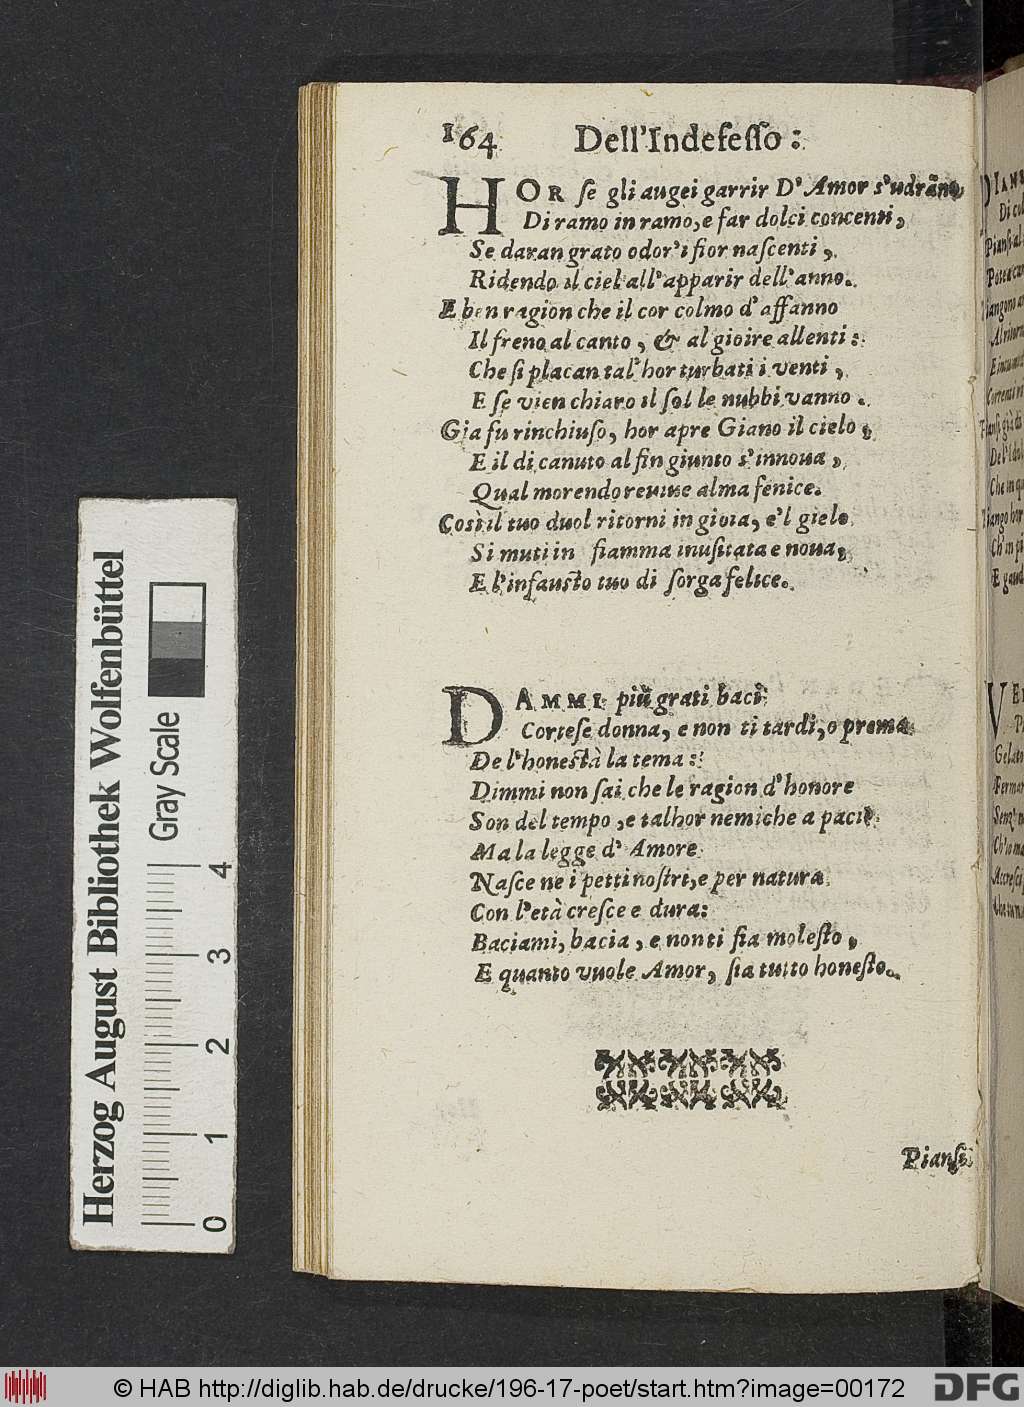 164 Dell'Indefeſſo:
HOR ſe gli augei garrir D'Amor s'udrãno,
Di ramo in ramo, e far dolci concenti,
Se daran grato odor'i fior naſcenti,
Ridendo il ciel all'apparir dell'anno.
E ben ragion che il cor colmo d'affanno
Il freno al canto, & al gioire allenti:
Che ſi placan tal'hor turbati i venti,
E ſe vien chiaro il ſol le nubbi vanno.
Gia fu rinchiuſo, hor apre Giano il cielo,
E il di canuto al fin giunto s'innoua,
Qual morendo reuiue alma fenice.
Così il tuo duol ritorni in gioia, e'l gielo
Si muti in fiamma inuſitata e noua,
E l'infauſto tuo di ſorga felice.
DAMMI più grati baci
Corteſe donna, e non ti tardi, o prema
De l'honeſtà la tema:
Dimmi non ſai che le ragion d'honore
Son del tempo, e talhor nemiche a pacie
Ma la legge d'Amore
Naſce ne i petti noſtri, e per natura
Con l'età creſce e dura:
Baciami, bacia, e non ti ſia moleſto,
E quanto vuole Amor, ſia tutto honeſto.
Pianſi
Herzog August Bibliothek Wolfenbüttel
Gray Scale
0 1 2 3 4
© HAB http://diglib.hab.de/drucke/196-17-poet/start.htm?image=00172
DFG